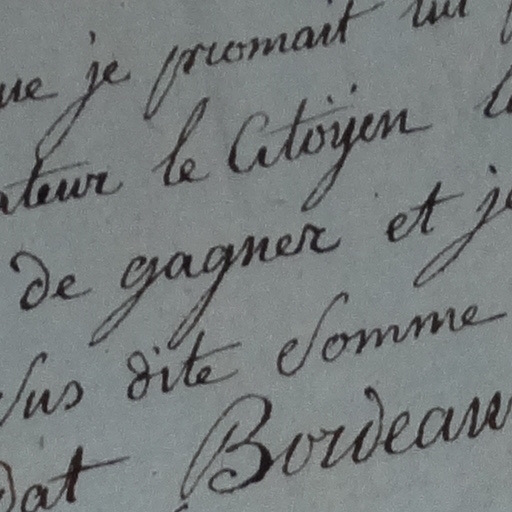 ue je promait lui
ateur le Citoÿen
de gagner et je
sus dite Somme
dat Bordeau